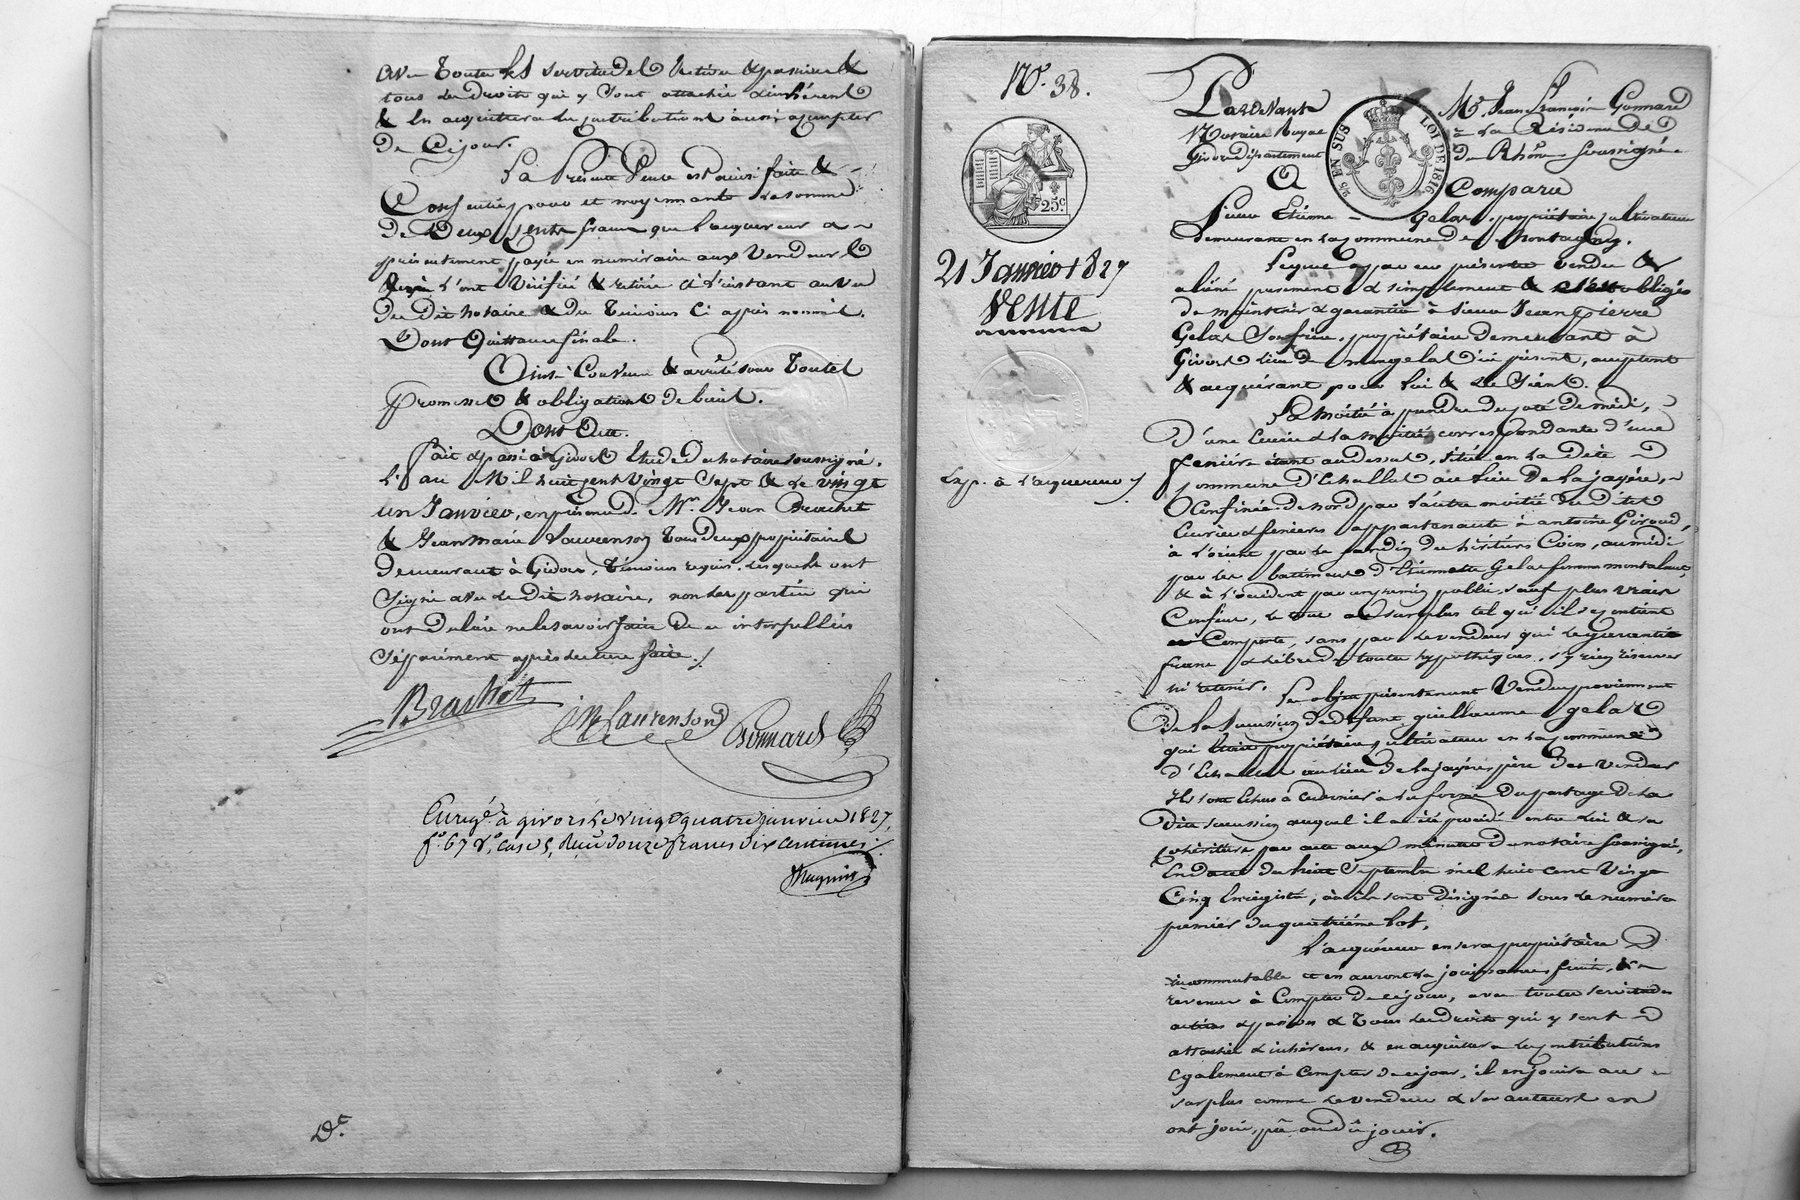 avec Toutes les servitudes Active & passive &
tous les droits qui y sont attachés & inhérent
& En acquittera les contributions aussi à compter
De Cejour.
La Présente Vente est aussi faite &
Consentie pour et moyennant la somme
De Deux Cents francs que l'acquereur a
présentement payée en numéraire aux Vendeurs
qui l'ont Vérifiée & retirée à l'instant au vu
Du Dit notaire & Des Temoins Ci après nommés.
Dont Quittance finale.
Ainsi Convenu & arrêté sous Toutes
promesses & obligations de Droit.
Dont Acte.
Fait & passé à Givors Etude Du notaire soussigné,
L'an Mil huit cent Vingt Sept & Le vingt
un Janvier, en présence de Mrs. Jean Brachet
& Jean Marie Laurenson Tous Deux propriétaires
Demeurant à Givors, Témoins requis, lesquels ont
Signé avec Le Dit notaire, non Les parties qui
ont Déclaré ne le savoir faire De ce interpellées
Séparément après lecture faite./.
Brachet
JM Laurenson
Gonnard
Enregé. à givors le vingt quatre janvier 1827,
fo. 67 Vo. case 5, Reçu Douze francs dix centimes
De.
No. 38.
25c.
21 Janvier 1827
Vente
Exp. à l'acquereur
Pardevant Me. Jean François Gonnard
Notaire Royal à La Résidence De
Givors département du Rhône Soussigné
25 EN SUS LOI DE 1816
A Comparu
Sieur Etienne Gelas, propriétaire cultivateur
demeurant en la commune de Montagny.
Lequel a par ces présentes vendu &
aliéné purement & simplement & s'est obligé
de maintenir & garantir à Sieur Jean Pierre
Gelas Son frère, propriétaire demeurant à
Givors lieu de mangelas Ici présent, acceptant
& acquérant pour Lui & Les Siens.
La Moitié à prendre du côté De midi,
D'une Ecurie & la moitié correspondante d'une
fenière étant au dessus, située en La Dite
commune D'Echallas au lieu De la jayère,
Confinée De nord par l'autre moitié Des Dites
Ecurie & fenières appartenante à antoine Giroud,
à l'orient par Le jardin des héritiers Coin, au midi
par les batiments d'Etiennette Gelas femme montalan,
& à l'occident par un chemin public, sauf plus vrais
Confins, Le tout au Surplus tel qu'il se contient
& Comporte, sans par Le vendeur qui Le garantit
franc & libre de toutes hypothèques, s'y rien réserver
ni retenir. Les objets présentement Vendus proviennent
De la Succession De défunt guillaume gelas
qui était propriétaire cultivateur en La commune
d'Echallas au lieu De la jayère, père Des Vendeur
Ils sont Echus à ce dernier à La forme Du partage De La
Dite succession auquel il a été procédé entre Lui & ses
cohéritiers par acte aux minutes Du notaire Soussigné,
En date du huit Septembre mil huit cent Vingt
Cinq Enregistré, où ils sont désignés sous le numéro
premier du quatrième lot.
L'acquéreur en sera propriétaire
incommutable et en aura la jouissance, fruits, &
revenus à Compter De ce jour, avec toutes servitudes
actives & passives & Tous Les Droits qui y sont
attachés & inhérens, & en acquittera les contributions
Egalement à compter De ce jour, il en jouira au
surplus comme Le vendeur & ses auteurs en
ont joui, pû ou dû jouir.